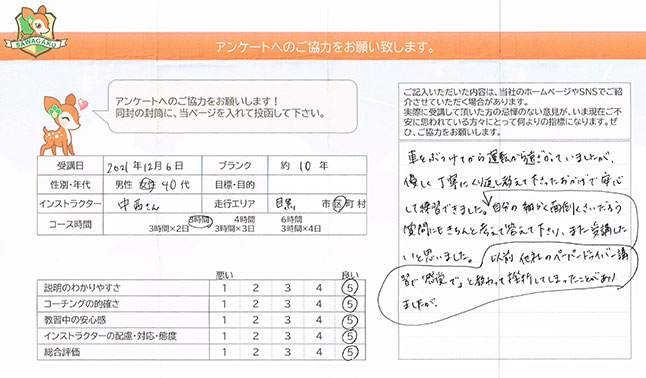 SAWAGAKU
アンケートへのご協力をお願い致します。
アンケートへのご協力をお願いします！
同封の封筒に、当ページを入れて投函して下さい。
受講日 2021年12月6日 ブランク 約10年
性別・年代 男性 女性 40代 目標・目的
インストラクター 中西さん 走行エリア 目黒 市区町村
コース時間 3時間 4時間 6時間
3時間×2日 3時間×3日 3時間×4日
悪い 良い
説明のわかりやすさ 1 2 3 4 5
コーチングの的確さ 1 2 3 4 5
教習中の安心感 1 2 3 4 5
インストラクターの配慮・対応・態度 1 2 3 4 5
総合評価 1 2 3 4 5
ご記入いただいた内容は、当社のホームページやSNSでご紹
介させていただく場合があります。
実際に受講して頂いた方の忌憚のない意見が、いま現在ご不
安に思われている方々にとって何よりの指標になります。ぜ
ひ、ご協力をお願いします。
車をぶつけてから運転が遠ざかっていましたが、
優しく丁寧にくり返し教えて下さったおかげで安心
して練習できました。自分の細かく面倒くさいだろう
質問にもきちんと考えて答えて下さり、また受講した
いと思いました。以前他社のペーパードライバー講
習で「感覚で」と教わって挫折してしまったことがあり
ましたが。